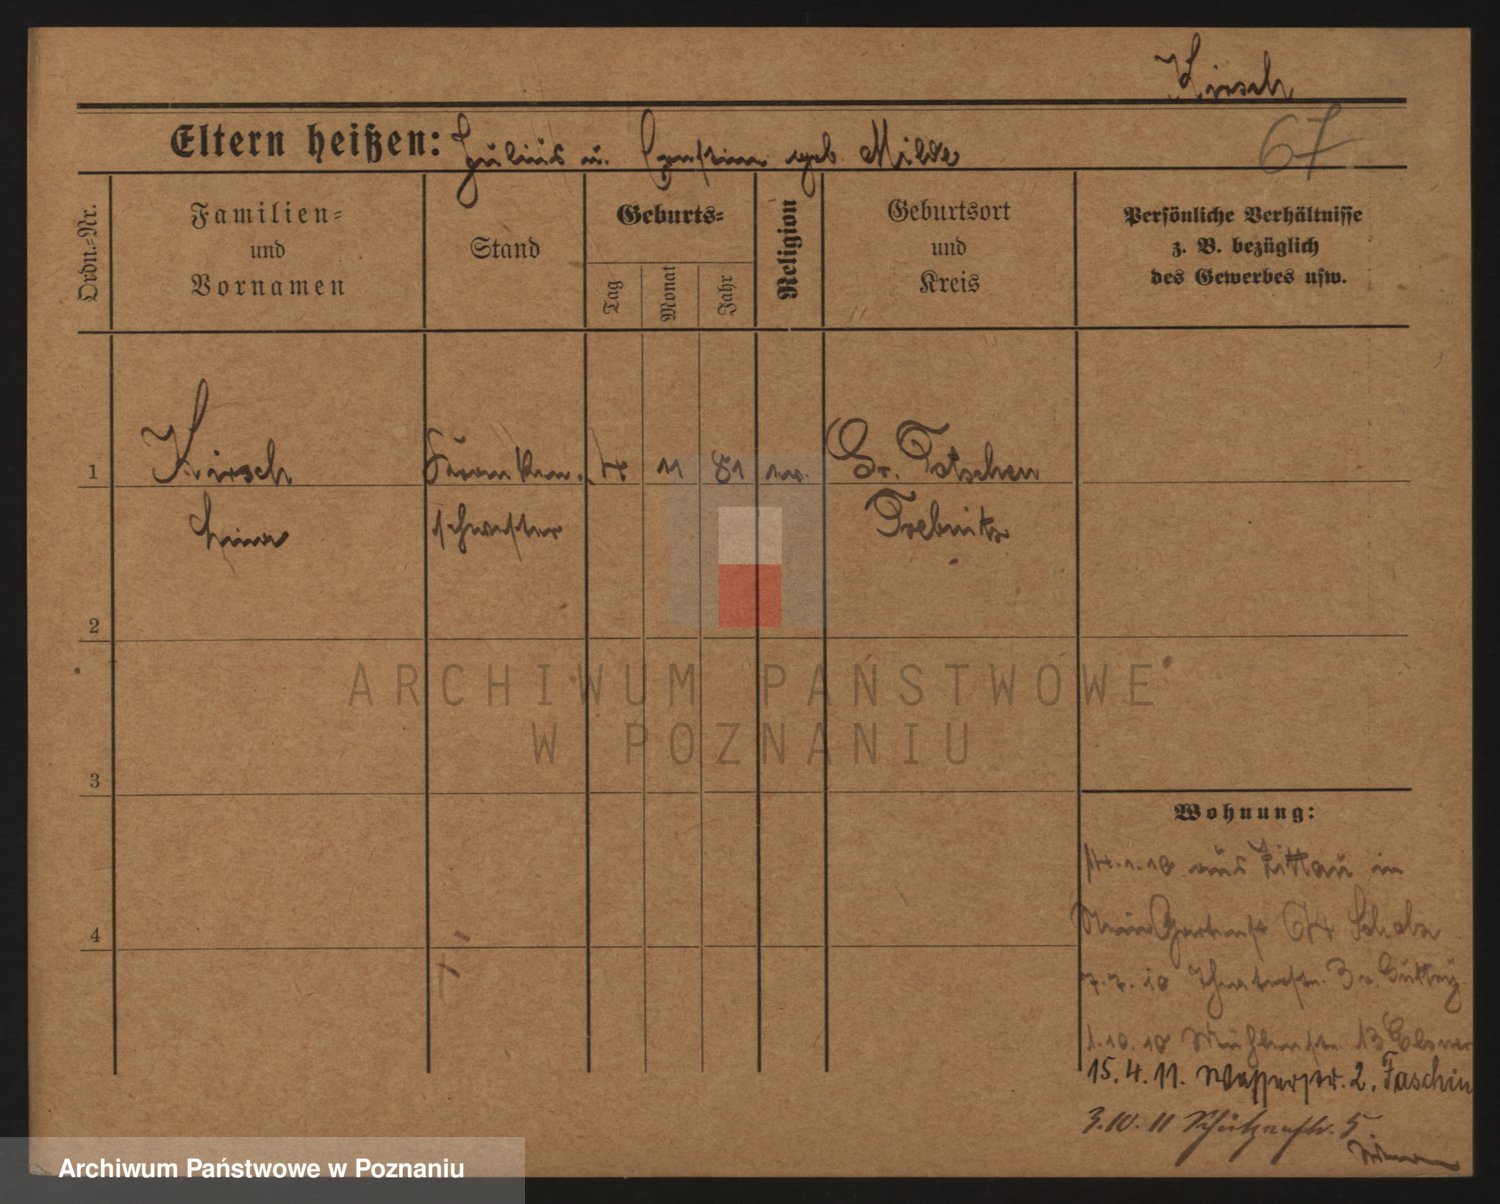 Kirsch
Eltern heißen: Julius u. geb. Milde
67
Ordn.-Nr.
Familien-
und
Vornamen
Stand
Geburts-
Tag
Monat
Jahr
Religion
Geburtsort
und
Kreis
Persönliche Verhältnisse
z. B. bezüglich
des Gewerbes usw.
1
Kirsch
Kranken-
4
11
81
ev.
Gr. Totschen
schwester
Trebnitz
2
ARCHIWUM PAŃSTWOWE
W POZNANIU
3
Wohnung:
14.1.10 aus Zittau in
4
Gartenstr 
7.7.10 Theaterstr. 3 v. Guttry
1.10.10 Mühlenstr. 13 Elsner
15.4.11. Wasserstr. 2. Faschin
3.10.11 Schützenstr. 5
Archiwum Państwowe w Poznaniu